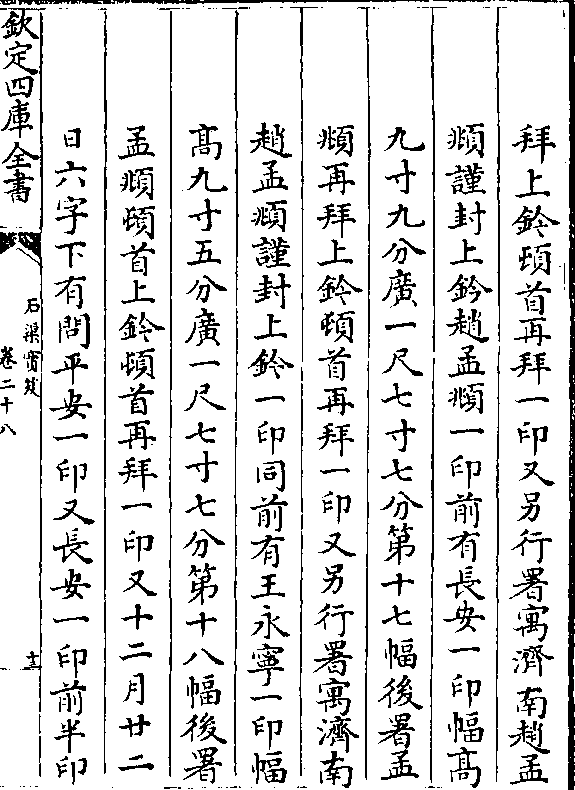 拜上鈐頓首再拜一印又另行署寓濟南趙孟
頫謹封上鈐趙孟頫一印前有長安一印幅髙
九寸九分廣一尺七寸七分第十七幅後署孟
頫再拜上鈐頓首再拜一印又另行署寓濟南
趙孟頫謹封上鈐一印同前有王永寧一印幅
髙九寸五分廣一尺七寸七分第十八幅後署
孟頫頓首上鈐頓首再拜一印又十二月廿二
日六字下有問平安一印又長安一印前半印
欽定四庫全書
石渠寶笈
卷二十八
十三